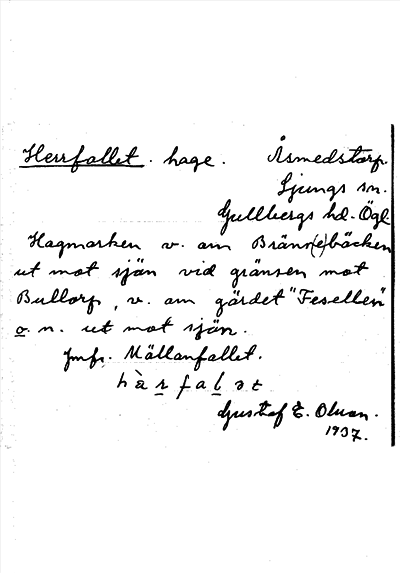 Herrfallet. hage. Åsmedstorp.
Ljungs sn.
Gullbergs hd. Ögl
Hagmarken v. om Bränn(e)bäcken
ut mot sjön vid gränsen mot
Bullorp, v. om gärdet "Fesellen"
o. n. ut mot sjön.
Jmfr. Mällanfallet.
hàrfalət
Gustaf E. Olson.
1937.